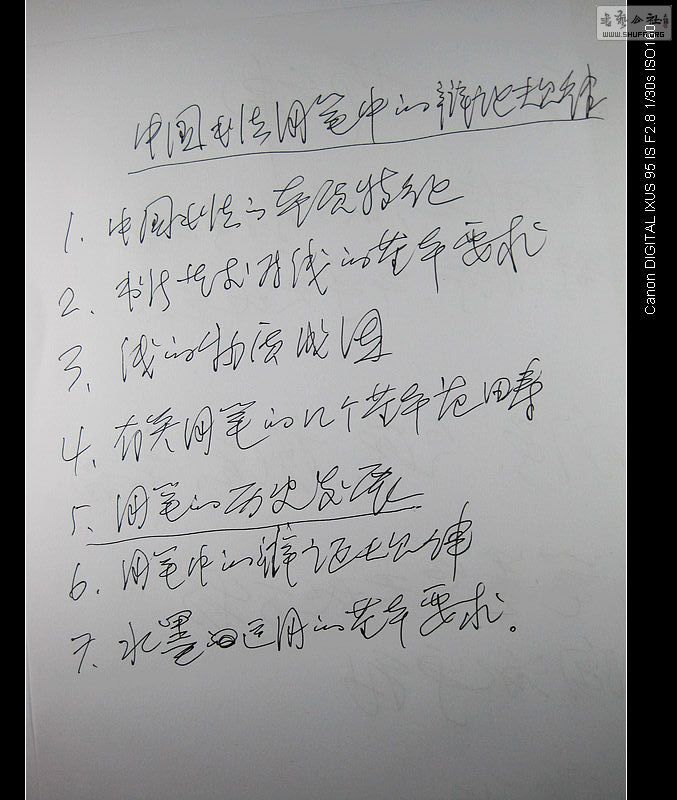 中国书法用笔中的辩证规律
1. 中国书法的本质特征
2. 书法艺术对线的基本要求
3. 线的物质成因
4. 有关用笔的几个基本范畴
5. 用笔的历史发展
6. 用笔中的辩证规律
7. 水墨运用的基本要求。
书法公社
WWW.SHUFA.ORG
Canon DIGITAL IXUS 95 IS F2.8 1/30s ISO160